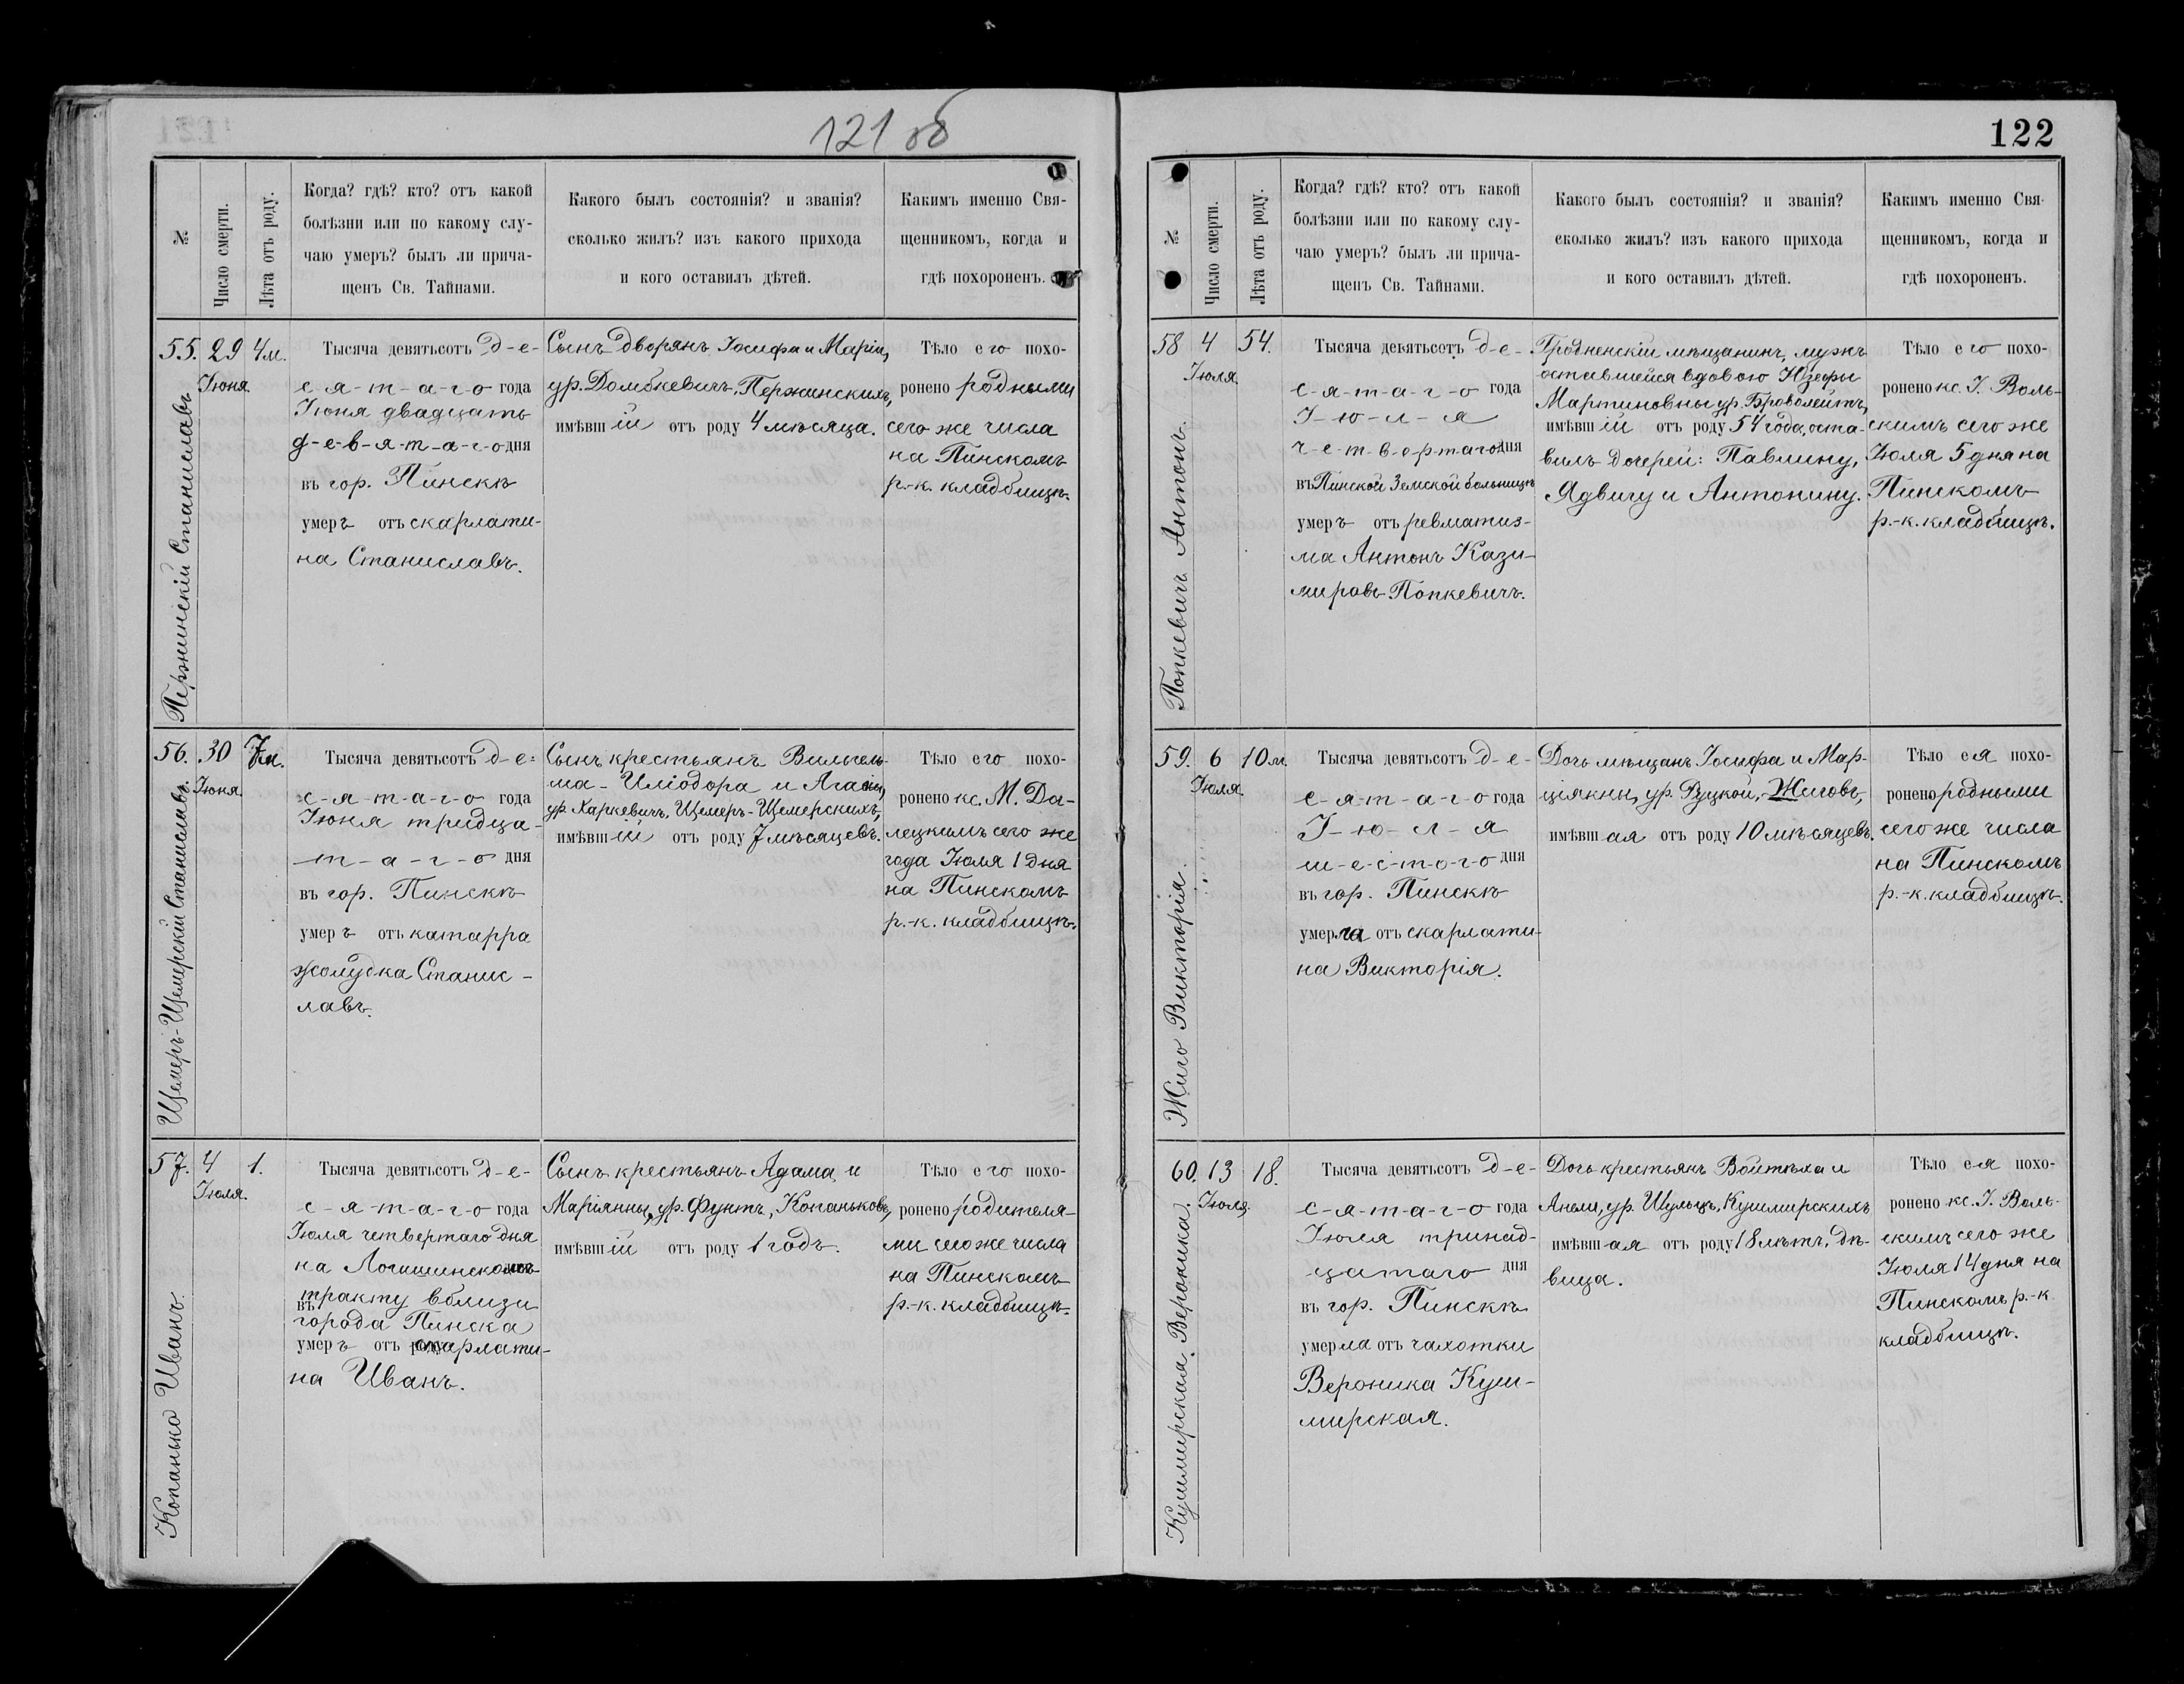 121 об
№
Число смерти.
Лѣта отъ роду.
Когда? гдѣ? кто? отъ какой
болѣзни или по какому слу-
чаю умеръ? былъ ли прича-
щенъ Св. Тайнами.
Какого былъ состоянія? и званія?
сколько жилъ? изъ какого прихода
и кого оставилъ дѣтей.
Какимъ именно Свя-
щенникомъ, когда и
гдѣ похороненъ.
55. 29 4 м.
Іюня
Пержинскій Станиславъ
Тысяча девятьсотъ д-е-
с-я-т-а-г-о года
Іюня двадцать
д-е-в-я-т-а-г-о дня
въ гор. Пинскѣ
умеръ отъ скарлати-
на Станиславъ.
Сынъ дворянъ Іосифа и Маріи,
ур. Домбкевичъ, Пержинскихъ,
имѣвшій отъ роду 4 мѣсяца.
Тѣло его похо-
ронено родными
сего же числа
на Пинскомъ
р.-к. кладбищѣ.
56. 30 7 м.
Іюня
Щемеръ-Щемерскій Станиславъ.
Тысяча девятьсотъ д-е-
с-я-т-а-г-о года
Іюня тридца-
т-а-г-о дня
въ гор. Пинскѣ
умеръ отъ катарра
желудка Станис-
лавъ.
Сынъ крестьянъ Вильгель-
ма-Иліодора и Агаѳіи,
ур. Харкевичъ, Щемеръ-Щемерскихъ,
имѣвшій отъ роду 7 мѣсяцевъ.
Тѣло его похо-
ронено кс. М. До-
лецкимъ сего же
года Іюля 1 дня
на Пинскомъ
р.-к. кладбищѣ.
57. 4 1.
Іюля.
Копанько Иванъ.
Тысяча девятьсотъ д-е-
с-я-т-а-г-о года
Іюля четвертаго дня
на Логишинскомъ
тракту вблизи
въ
города Пинска
умеръ отъ скарлати-
на Иванъ.
Сынъ крестьянъ Адама и
Маріянны, ур. Фунтъ, Копаньковъ,
имѣвшій отъ роду 1 годъ.
Тѣло его похо-
ронено родителя-
ми сего же числа
на Пинскомъ
р.-к. кладбищѣ.
122
№
Число смерти.
Лѣта отъ роду.
Когда? гдѣ? кто? отъ какой
болѣзни или по какому слу-
чаю умеръ? былъ ли прича-
щенъ Св. Тайнами.
Какого былъ состоянія? и званія?
сколько жилъ? изъ какого прихода
и кого оставилъ дѣтей.
Какимъ именно Свя-
щенникомъ, когда и
гдѣ похороненъ.
58 4 54.
Іюля.
Попкевичъ Антонъ.
Тысяча девятьсотъ д-е-
с-я-т-а-г-о года
І-ю-л-я
ч-е-т-в-е-р-т-а-г-о дня
въ Пинской Земской больницѣ
умеръ отъ ревматиз-
ма Антонъ Кази-
мировъ Попкевичъ.
Гродненскій мѣщанинъ, мужъ
оставшейся вдовою Юзефы
Мартиновны ур.
имѣвшій отъ роду 54 года, оста-
вилъ дочерей: Павлину,
Ядвигу и Антонину.
Тѣло его похо-
ронено кс. І. Воль-
скимъ сего же
Іюля 5 дня на
Пинскомъ
р.-к. кладбищѣ.
59. 6 10 м.
Іюля.
Жиго Викторія.
Тысяча девятьсотъ д-е-
с-я-т-а-г-о года
І-ю-л-я
ш-е-с-т-о-г-о дня
въ гор. Пинскѣ
умерла отъ скарлати-
на Викторія.
Дочь мѣщанъ Іосифа и Мар-
ціянны, ур. Руцкой, Жиговъ,
имѣвшая отъ роду 10 мѣсяцевъ.
Тѣло ея похо-
ронено родными
сего же числа
на Пинскомъ
р.-к. кладбищѣ.
60. 13 18.
Іюля
Кушмирская Вероника.
Тысяча девятьсотъ д-е-
с-я-т-а-г-о года
Іюля тринад-
цатаго дня
въ гор. Пинскѣ
умерла отъ чахотки
Вероника Куш-
мирская.
Дочь крестьянъ Войтѣха и
Анели, ур. Шульцъ, Кушмирскихъ
имѣвшая отъ роду 18 лѣтъ, дѣ-
вица.
Тѣло ея похо-
ронено кс. І. Воль-
скимъ сего же
Іюля 14 дня на
Пинскомъ р.-к
кладбищѣ.